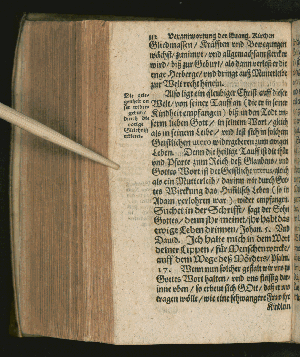 Verantwortung der Evang. Kirchen
Gliedmassen / Kräfften und Bewegungen
wächst / zunimpt / und allgemachsam stercker
wird / biß zur Geburt / als dann verlest er die
enge Herberge / und dringt auß Mutterleibe
zur Welt recht hinein.
Also ligt ein gleubiger Christ auff dieser
Welt / von seiner Tauff an (die er in seiner
Kindheit empfangen) biß in den Todt un-
serm lieben Gott / in seinem Wort / gleich
als in seinem Leibe / und lest sich in solchem
Geistlichen utero widergeberen zum ewigen
Leben. Denn die heilige Tauff ist die thür
und Pforte zum Reich deß Glaubens / und
Gottes Wort ist der Geistliche uterus / gleich
als ein Mutterleib / darinn wir durch Got-
tes Wirckung das Himlisch Leben (so in
Adam verlohren war) widet empfangen.
Suchet in der Schrifft / sagt der Sohn
Gottes / denn ihr meinet / ihr habt das
ewige Leben drinnen / Johan. 5. Und
David. Ich halte mich in dem Wort
deiner Lippen / für Menschen wercke /
auff dem Wege deß Mörders / Psalm.
17. Wenn nun solcher gestalt wir uns zu
Gottes Wort halten / und uns fleissig dar-
inne oben / so erbeut sich GOtt / daß er uns
tragen wölle / wie eine schwangere Fraw ihr
Kindlein